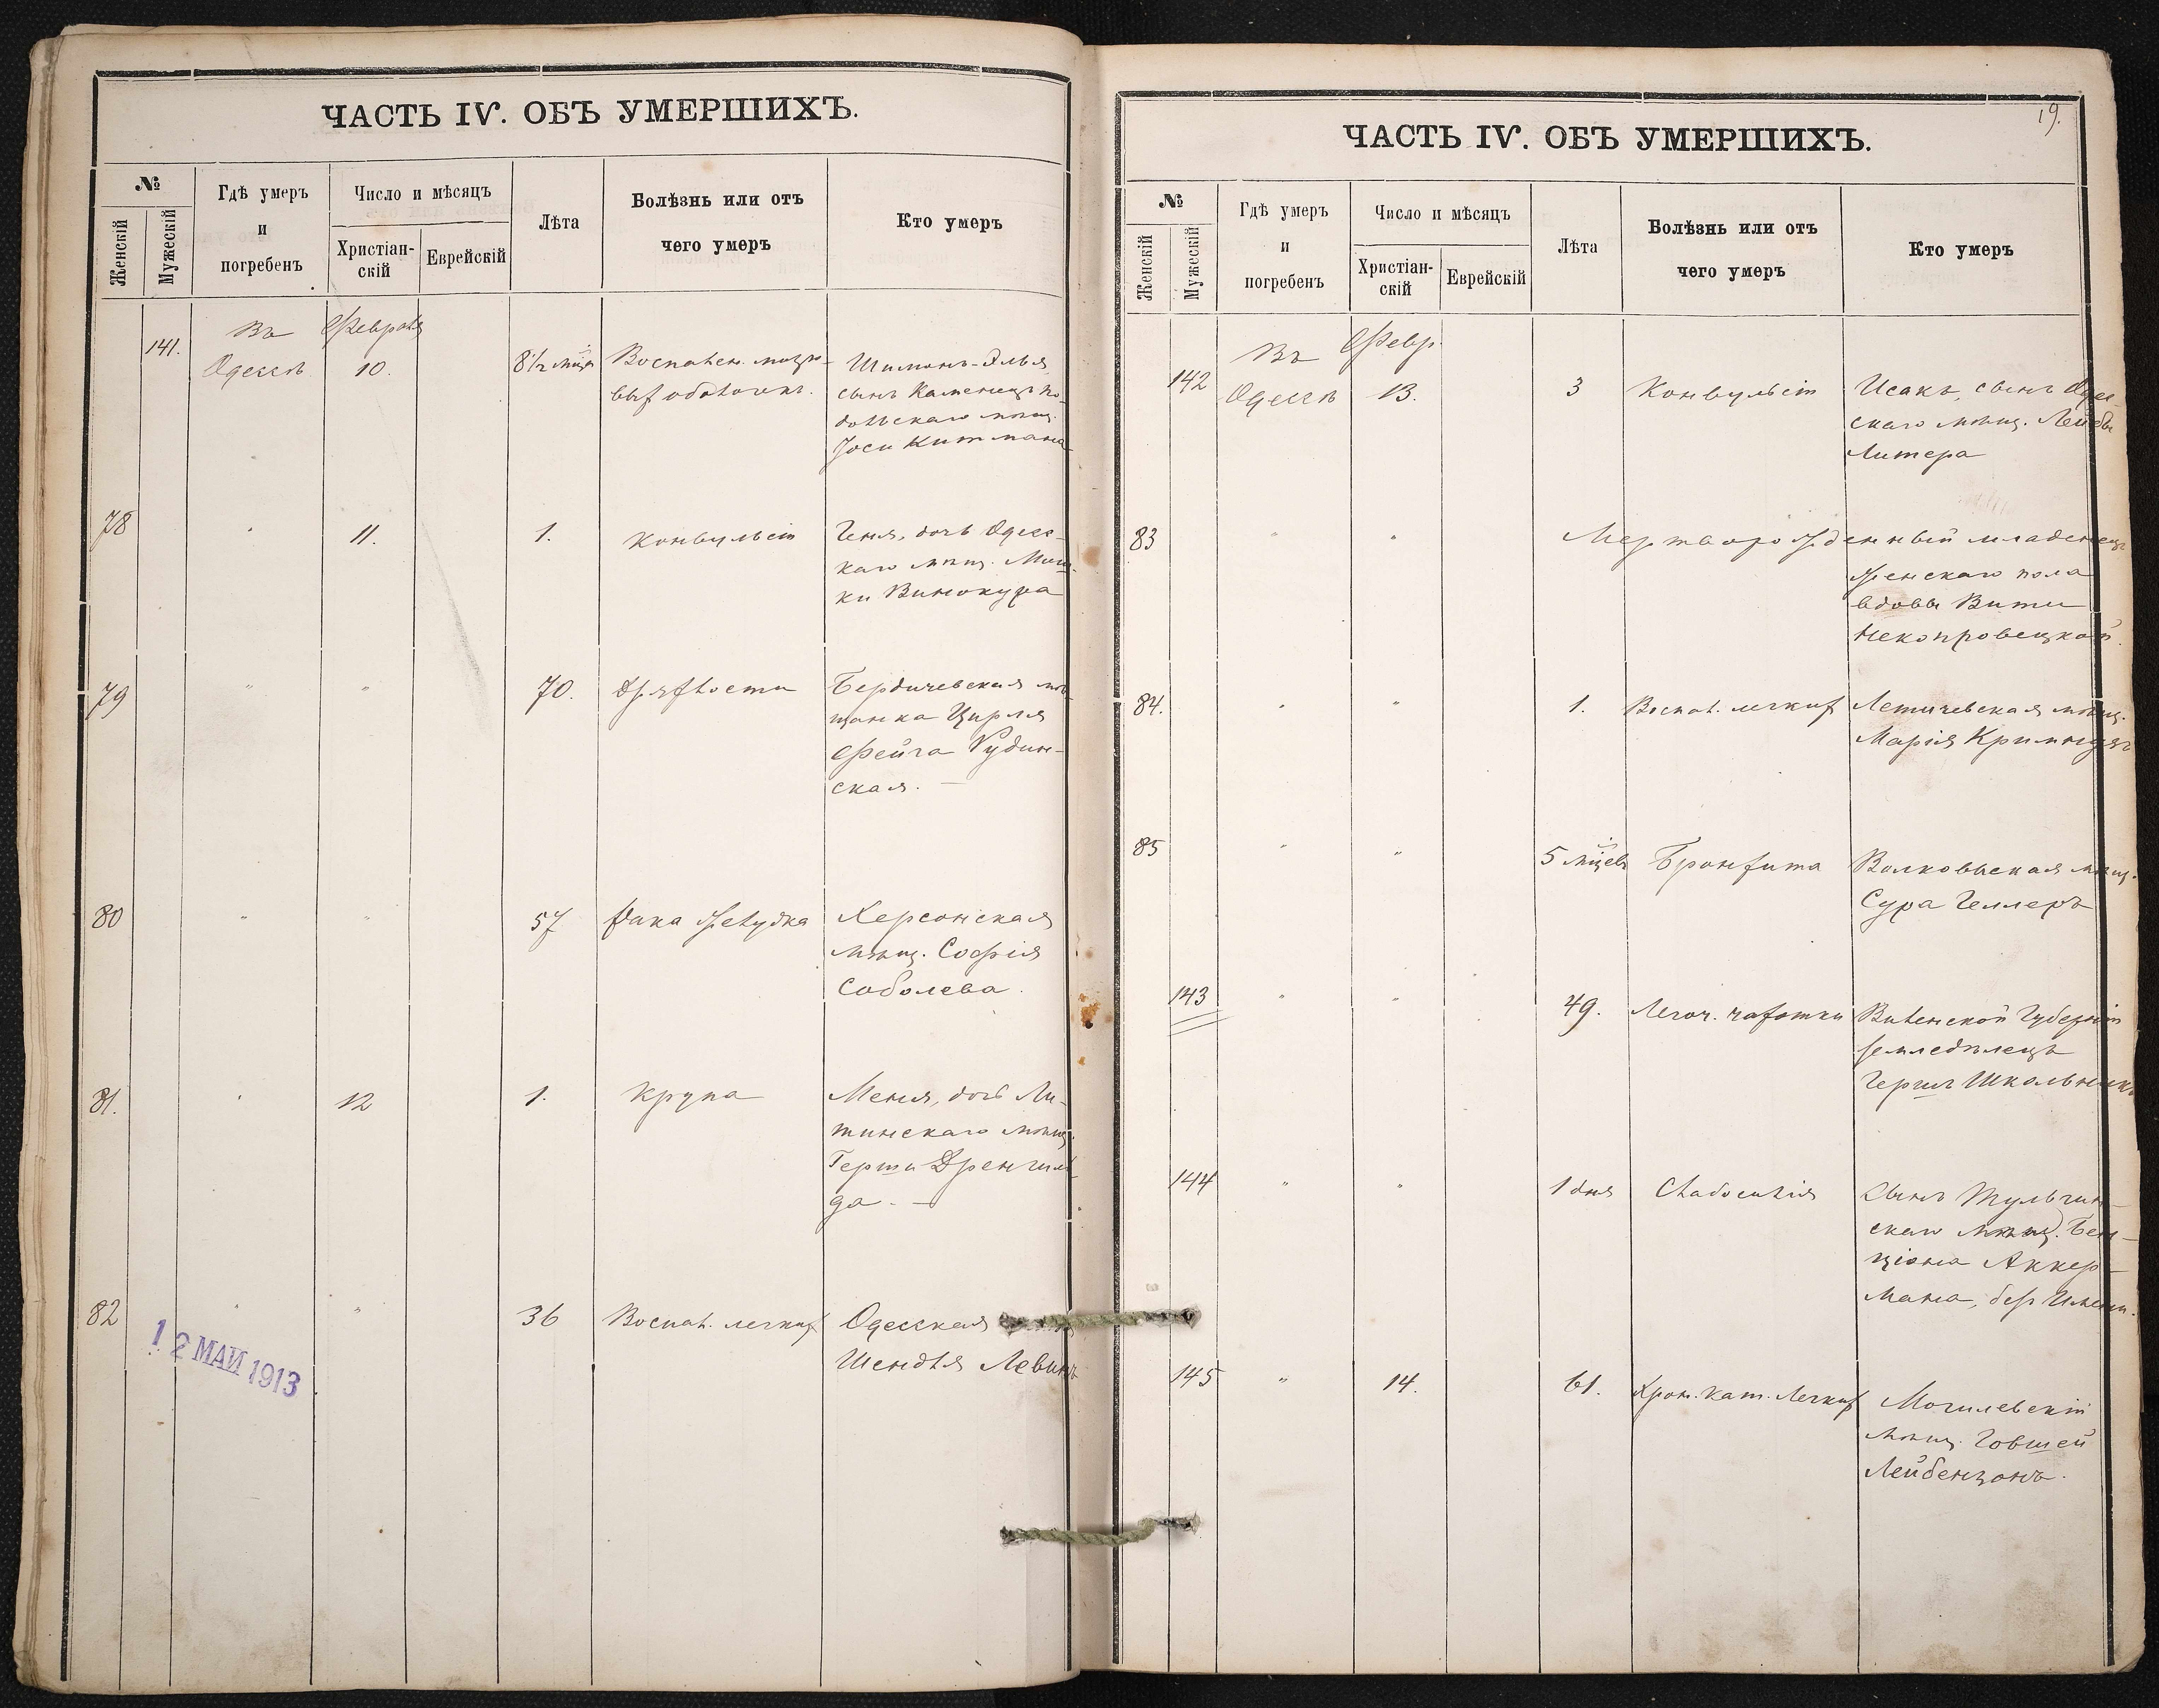 ЧАСТЬ IV. ОБЪ УМЕРШИХЪ.
№
Женскій
Мужескій
Гдѣ умеръ
и
погребенъ
Число и мѣсяцъ
Христіан-
скій
Еврейскій
Лѣта
Болѣзнь или отъ
чего умеръ
Кто умеръ
141.
Въ
Одессѣ
Февраля
10.
8½ мѣц
Воспален. мозго-
вых оболочекъ.
Шимонъ-Элья,
сынъ Каменецъ По-
дольскаго мѣщ.
Іоси Китмана
78
"
11.
1.
Конвульсіи
Геня, дочь Одесс-
каго мѣщ. Мош-
ки Винокура
79
"
"
70.
Дряхлости
Бердичевская мѣ-
щанка Цирля
Фейга Рудин-
ская. —
80
"
"
57
Рака желудка
Херсонская
мѣщ. Софія
Соболева.
81.
"
12
1.
Крупа
Меня, дочь Ли-
тинскаго мѣщ.
Герши
да. —
82
"
"
36
Воспал. легких
Одесская
Шендля Левинъ
12 МАЙ 1913
19.
ЧАСТЬ IV. ОБЪ УМЕРШИХЪ.
№
Женскій
Мужескій
Гдѣ умеръ
и
погребенъ
Число и мѣсяцъ
Христіан-
скій
Еврейскій
Лѣта
Болѣзнь или отъ
чего умеръ
Кто умеръ
142
Въ
Одессѣ
Февр.
13.
3
Конвульсіи
Исакъ, сынъ Одес-
скаго мѣщ. Лейбы
Литера
83
"
"
Мертворожденный младенецъ
женскаго пола
вдовы Витли
Некопровецкой.
84.
"
"
1.
Воспал. легких
Летичевская мѣщ.
Марія
85
"
"
5 мѣцевъ
Бронхита
Волковыская мѣщ.
Сура Геллеръ
143
"
"
49.
Легоч. чахотки
Виленской Губерніи
земледѣлецъ
Гершъ Школьникъ
144
"
"
1 дня
Слабосилія
Сынъ Тульчин-
скаго мѣщ. Бен-
ціона Аккер-
мана, без Имени.
145
"
14.
61.
Хрон. кат. Легких
Могилевскій
мѣщ. Говшей
Лейбензонъ.